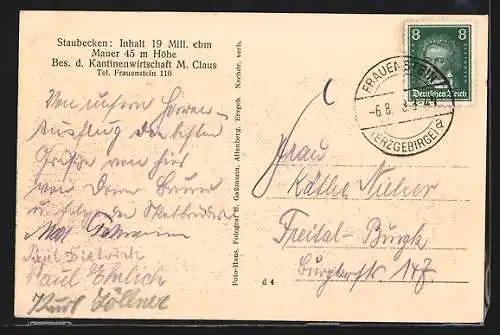 Staubecken: Inhalt 19 Mill. cbm
Mauer 45 m Höhe
Bes. d. Kantinenwirtschaft M. Claus
Tel. Frauenstein 110
Von unserm Herren-
Ausflug die besten
Grüße von hier
von Deinem Bruno
u.
Paul Dietrich
Paul Ehrlich
Kurt Söllner
Foto-Haus. Fotograf H. Gaßmann, Altenberg, Erzgeb. Nachdr. verb.
d 4
8 8
Deutsches Reich
FRAUENSTEIN
-6.8.
(ERZGEBIRGE) a
Frau
Käthe
Freital-Burgk
Burgkerstr. 147